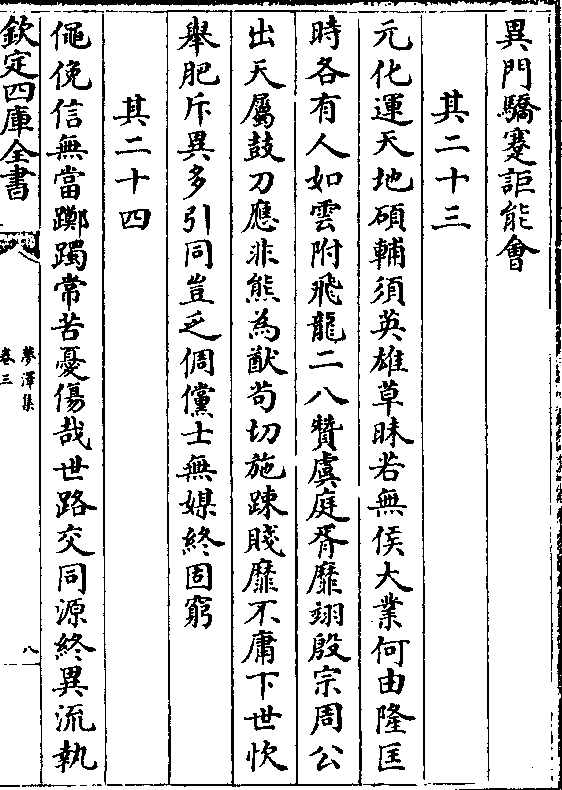 異門驕蹇詎能會
其二十三
元化運天地碩輔須英雄草昧若無侯大業何由隆匡
時各有人如雲附飛龍二八贊虞庭胥靡翊殷宗周公
出天屬鼓刀應非熊為猷苟切施踈賤靡不庸下世忺
舉肥斥異多引同豈乏倜儻士無媒終固窮
其二十四
僶俛信無當躑躅常苦憂傷哉世路交同源終異流執
欽定四庫全書
夢澤集
卷三
八